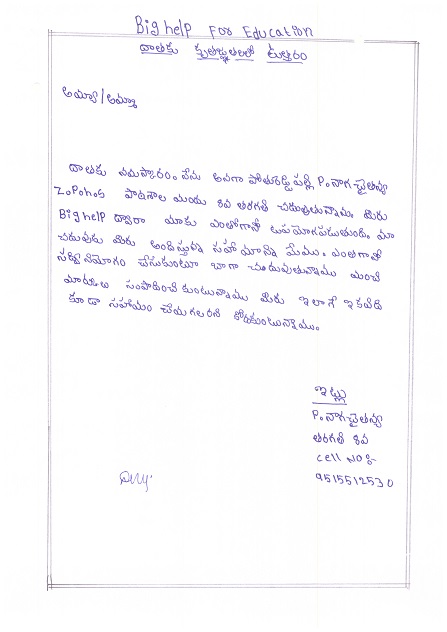 Big help For Education
దాతకు కృతజ్ఞతలతో ఉత్తరం
అయ్యా/అమ్మా
దాతకు నమస్కారం. నేను అనగా పోతురెడ్డిపల్లి P. నాగచైతన్య
ZPPHS పాఠశాల మరియు 8వ తరగతి చదువుతున్నాను. మీరు
Big help ద్వారా మాకు ఎంతోగానో ఉపయోగపడుతుంది. మా
చదువుకు మీరు అందిస్తున్న సహాయాన్ని మేము ఎంతగానో
సద్వినియోగం చేసుకుంటూ బాగా చదువుతున్నాము మంచి
మార్కులు సంపాదించుకుంటున్నాము మీరు ఇలాగే ఇకమీద
కూడా సహాయం చేయగలరని కోరుకుంటున్నాము.
ఇట్లు
P. నాగచైతన్య
తరగతి 8వ
cell NO:-
9515512530